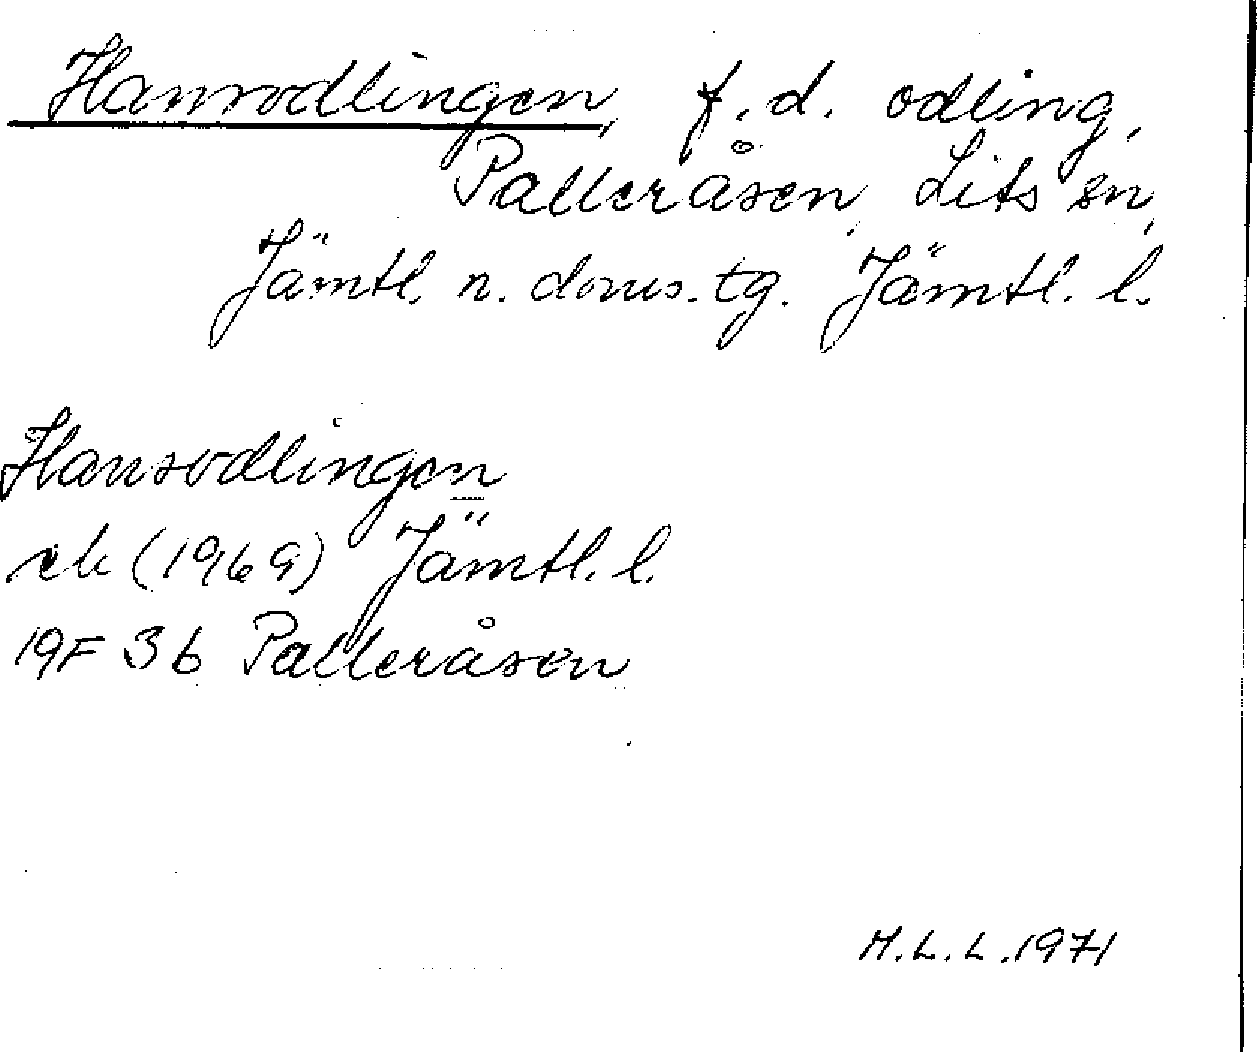 Hansodlingen, f.d. odling,
Palleråsen, Lits sn,
Jämtl. n. doms.tg. Jämtl. l.
Hansodlingen
ek (1969) Jämtl. l.
19F 3b Palleråsen
M.L.L.1971